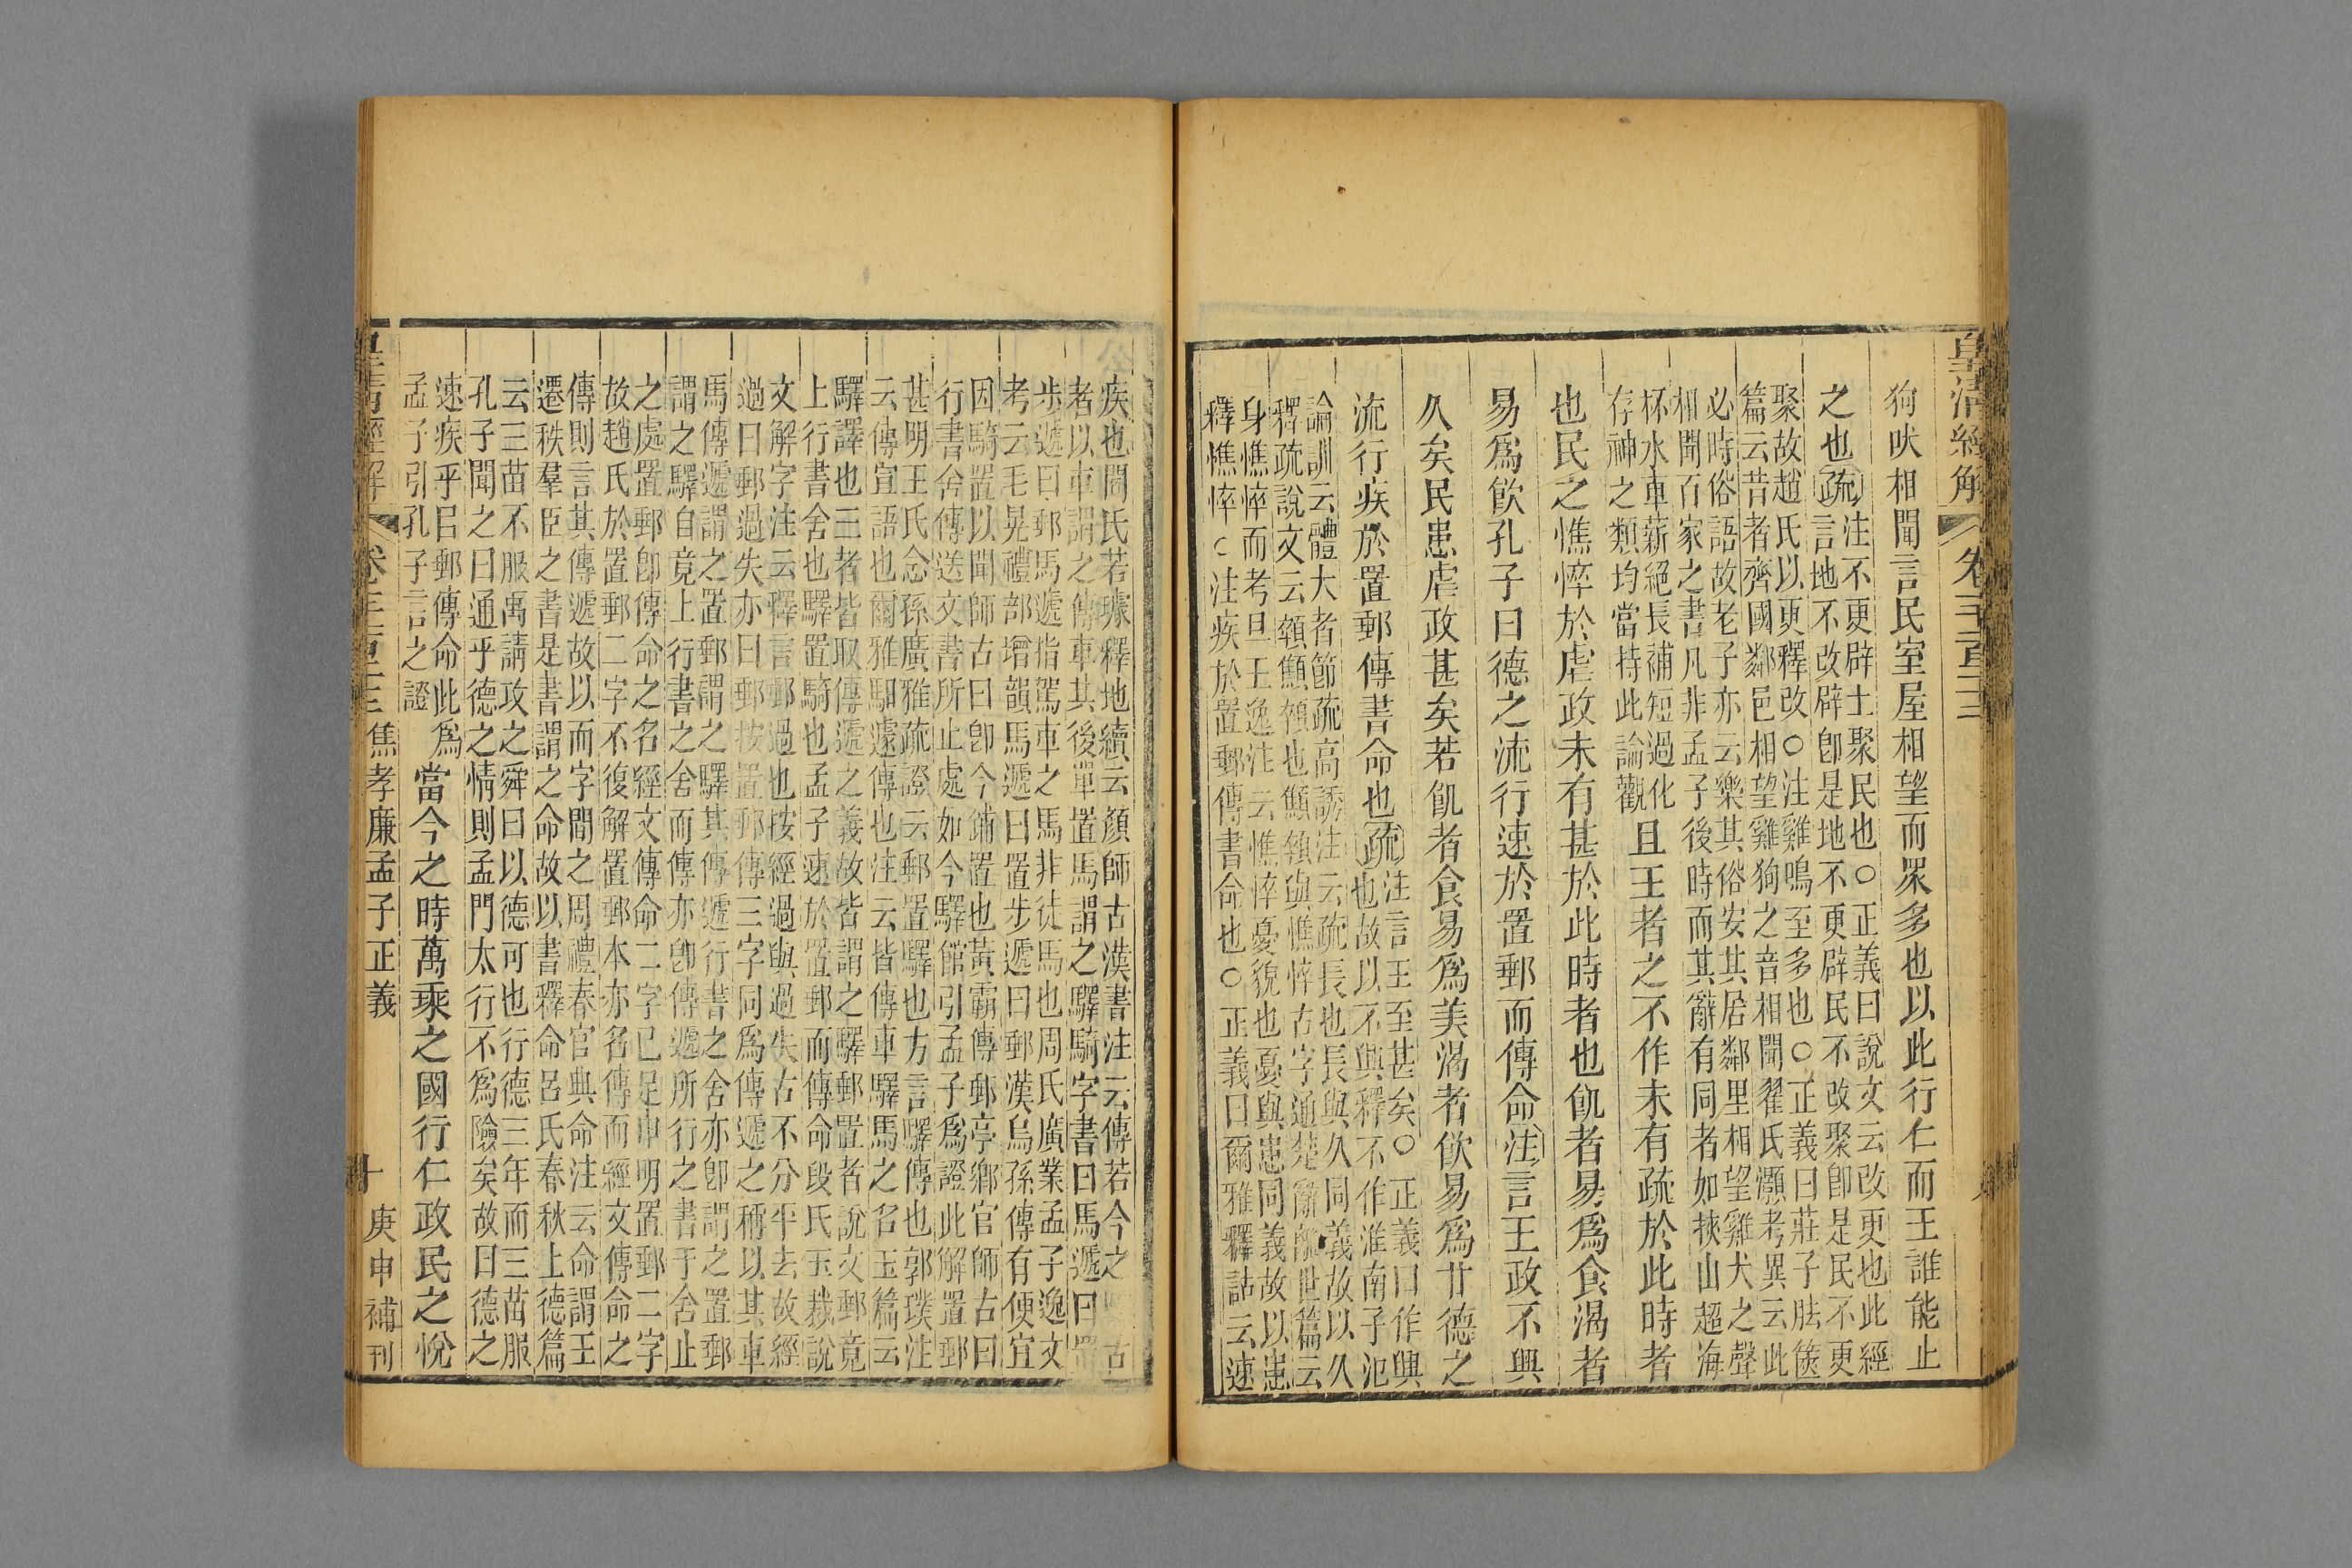 皇清經解 卷千一百二十三
狗吠相聞言民室屋相望而眾多也以此行仁而王誰能止
之也疏
注不更辟土聚民也○正義曰說文云改更也此經
言地不改辟卽是地不更辟民不改聚卽是民不更
聚故趙氏以更釋改○注雞鳴至多也○正義曰莊子胠篋
篇云昔者齊國鄰邑相望雞狗之音相聞翟氏灝考異云此
必時俗語故老子亦云樂其俗安其居鄰里相望雞犬之聲
相聞百家之書凡非孟子後時而其辭有同者如挾山超海
杯水車薪絕長補短過化
存神之類均當持此論觀
且王者之不作未有疏於此時者
也民之憔悴於虐政未有甚於此時者也飢者易爲食渴者
易爲飮孔子曰德之流行速於置郵而傳命注言王政不興
久矣民患虐政甚矣若飢者食易爲美渴者飮易爲甘德之
流行疾於置郵傳書命也疏
注言王至甚矣○正義曰作興
也故以不與釋不作淮南子氾
論訓云體大者節疏高誘注云疏長也長與久同義故以久
釋疏說文云顦顇也顦顇與憔悴古字通楚辭離世篇云
身憔悴而考旦王逸注云憔悴憂貌也憂與患同義故以患
釋憔悴○注疾於置郵傳書命也○正義曰爾雅釋詁云速
疾也閻氏若璩釋地續云顏師古漢書注云傳若今之驛古
者以車謂之傳車其後單置馬謂之驛騎字書曰馬遞曰置
步遞曰郵馬遞指駕車之馬非徒馬也周氏廣業孟子逸文
考云毛晃禮部增韻馬遞曰置步遞曰郵漢烏孫傳有便宜
因騎置以聞師古曰卽今鋪置也黃霸傳郵亭鄉官師古曰
行書舍傳送文書所止處如今驛館引孟子爲證此解置郵
甚明王氏念孫廣雅疏證云郵置驛也方言驛傳也郭璞注
云傳宣語也爾雅馹遽傳也注云皆傳車驛馬之名玉篇云
驛譯也三者皆取傳遞之義故皆謂之驛郵置者說文郵竟
上行書舍也驛置騎也孟子速於置郵而傳命段氏玉裁說
文解字注云釋言郵過也按經過與過失古不分平去故經
過曰郵過失亦曰郵按置郵傳三字同爲傳遞之稱以其車
馬傳遞謂之置郵謂之驛其傳遞行書之舍亦卽謂之置郵
謂之驛自竟上行書之舍而傳亦卽傳遞所行之書于舍止
之處置郵卽傳命之名經文傳命二字已足申明置郵二字
故趙氏於置郵二字不復解置郵本亦名傳而經文傳命之
傳則言其傳遞故以而字間之周禮春官典命注云命謂王
遷秩羣臣之書是書謂之命故以書釋命呂氏春秋上德篇
云三苗不服禹請攻之舜曰以德可也行德三年而三苗服
孔子聞之曰通乎德之情則孟門太行不爲險矣故曰德之
速疾乎㠯郵傳命此爲
孟子引孔子言之證
當今之時萬乘之國行仁政民之悅
焦孝廉孟子正義 十 庚申補刊